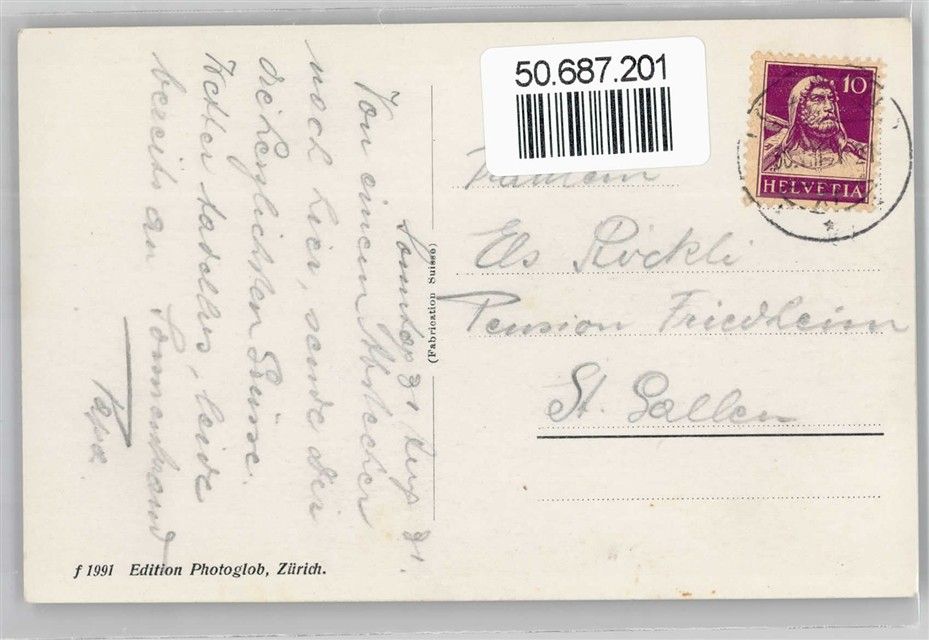 50.687.201
10
HELVETIA
Fräulein
Els Röckli
Pension Friedheim
St. Gallen
(Fabrication Suisse)
Sonntag 31
31.
Von einem Abstecher
noch hier, sende dir
die herzlichsten Grüsse.
Wetter tadellos, leide
bereits an Sonnenbrand
Papa.
f 1991 Edition Photoglob, Zürich.